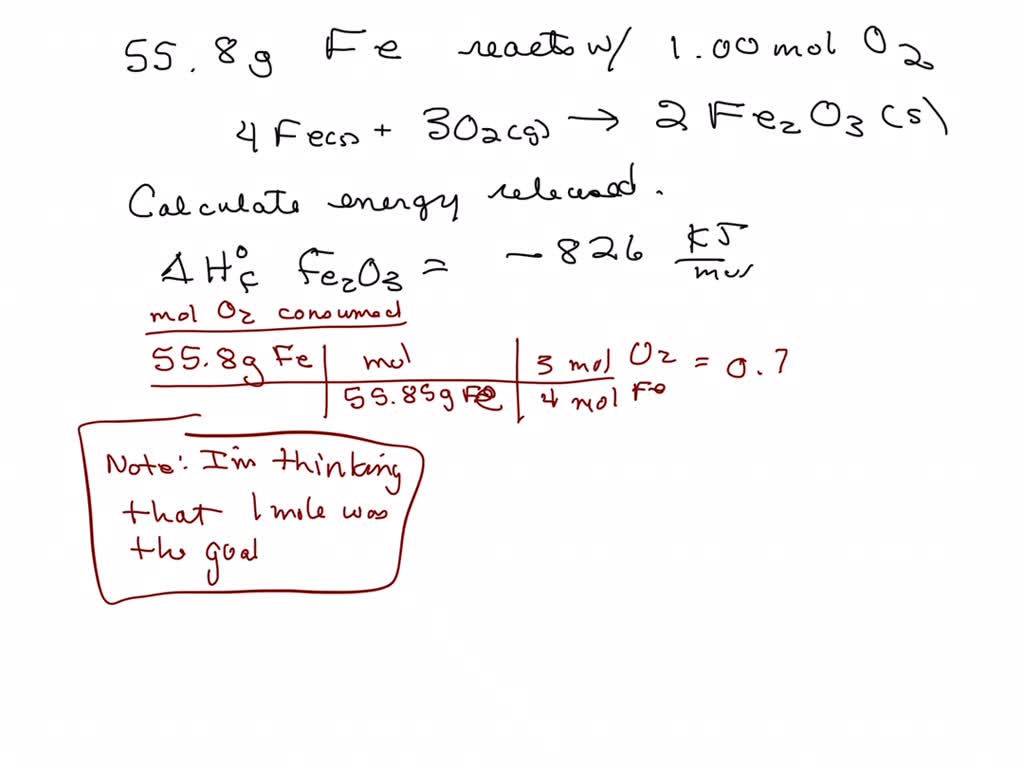 55.8g Fe reacts w/ 1.00 mol O2
4 Fe(s) + 3O2(g) → 2 Fe2O3 (s)
Calculate energy released.
ΔH°f Fe2O3 = -826 KJ/mol
mol O2 consumed
55.8g Fe | mol | 3 mol O2 = 0.7
55.85g Fe | 4 mol Fe
Note: I'm thinking
that 1 mole was
the goal